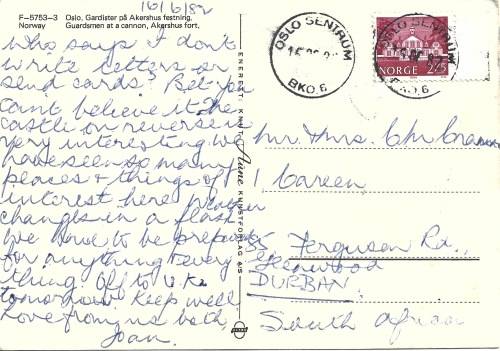 16/6/82
F-5753-3 Oslo, Gardister på Akershus festning,
Norway Guardsmen at a cannon, Akershus fort,
Who says I don't
write letters or
send cards? Bet you
cant believe it. The
castle on reverse is
very interesting. We
have seen so many
places & things of
interest here. Weather
changes in a flash.
We have to be prepared
for anything & every
thing. Off to U.K.
tomorrow. Keep well
Love from us both,
Joan.
ENERETT
Aune KUNSTFORLAG A/S
OSLO SENTRUM
BKO. 6
OSLO SENTRUM
BKO. 6
NORGE 225
Mr. & Mrs.
1, Careen
Ferguson Rd.,
Glenwood
DURBAN.
South Africa